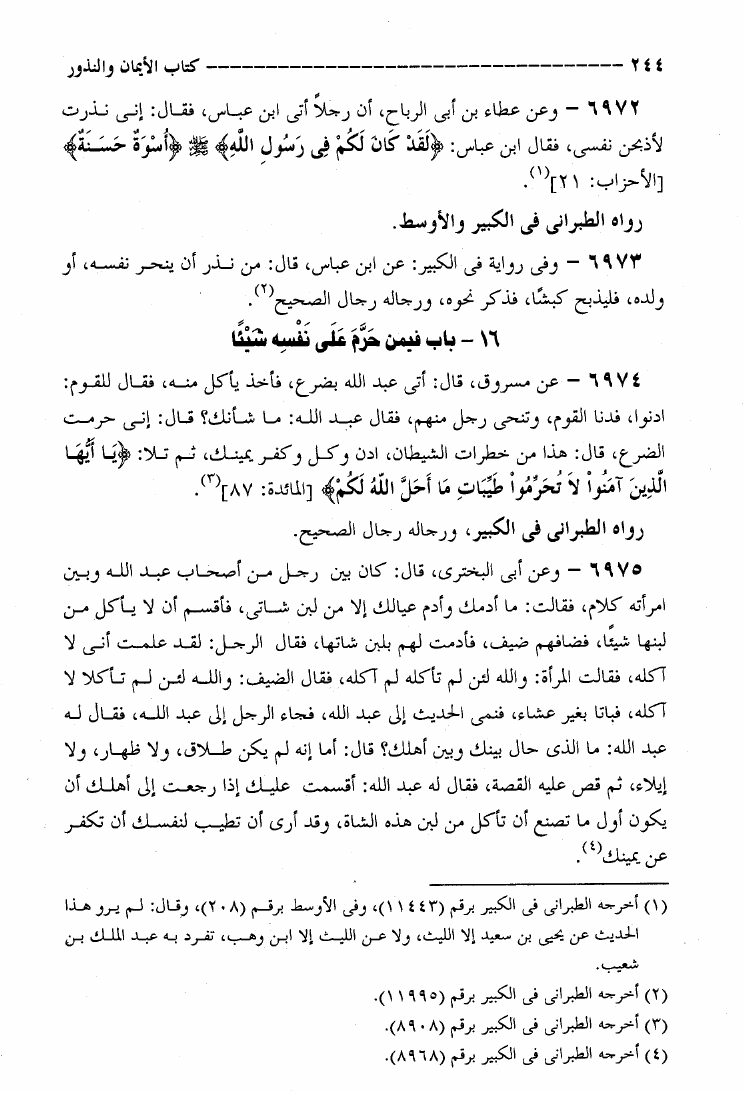 ٢٤٤ ------------------------------------ كتاب الأيمان والنذور
٦٩٧٢ – وعن عطاء بن أبى الرباح، أن رجلاً أتى ابن عباس، فقال: إنى نذرت
لأذبحن نفسى، فقال ابن عباس: ﴿لَقَدْ كَانَ لَكُمْ فِى رَسُولِ اللَّهِ﴾ ﷺ ﴿أُسْوَةٌ حَسَنَةٌ﴾
[الأحزاب: ٢١](١).
رواه الطبرانى فى الكبير والأوسط.
٦٩٧٣ – وفى رواية فى الكبير: عن ابن عباس، قال: من نذر أن ينحر نفسه، أو
ولده، فليذبح كبشًا، فذكر نحوه، ورجاله رجال الصحيح(٢).
١٦ – باب فيمن حَرَّمَ عَلَى نَفْسِهِ شَيْئًا
٦٩٧٤ – عن مسروق، قال: أتى عبد الله بضرع، فأخذ يأكل منه، فقال للقوم:
ادنوا، فدنا القوم، وتنحى رجل منهم، فقال عبد الله: ما شأنك؟ قال: إنى حرمت
الضرع، قال: هذا من خطرات الشيطان، ادن وكل وكفر يمينك، ثم تلا: ﴿يَا أَيُّهَا
الَّذِينَ آمَنُواْ لاَ تُحَرِّمُواْ طَيِّبَاتِ مَا أَحَلَّ اللَّهُ لَكُمْ﴾ [المائدة: ٨٧](٣).
رواه الطبرانى فى الكبير، ورجاله رجال الصحيح.
٦٩٧٥ – وعن أبى البخترى، قال: كان بين رجل من أصحاب عبد الله وبين
امرأته كلام، فقالت: ما أدمك وأدم عيالك إلا من لبن شاتى، فأقسم أن لا يأكل من
لبنها شيئًا، فضافهم ضيف، فأدمت لهم بلبن شاتها، فقال الرجل: لقد علمت أنى لا
آكله، فقالت المرأة: والله لئن لم تأكله لم آكله، فقال الضيف: والله لئن لم تأكلا لا
آكله، فباتا بغير عشاء، فنمى الحديث إلى عبد الله، فجاء الرجل إلى عبد الله، فقال له
عبد الله: ما الذى حال بينك وبين أهلك؟ قال: أما إنه لم يكن طلاق، ولا ظهار، ولا
إيلاء، ثم قص عليه القصة، فقال له عبد الله: أقسمت عليك إذا رجعت إلى أهلك أن
يكون أول ما تصنع أن تأكل من لبن هذه الشاة، وقد أرى أن تطيب لنفسك أن تكفر
عن يمينك(٤).
(١) أخرجه الطبرانى فى الكبير برقم (١١٤٤٣)، وفى الأوسط برقم (٢٠٨)، وقال: لم يرو هذا
الحديث عن يحيى بن سعيد إلا الليث، ولا عن الليث إلا ابن وهب، تفرد به عبد الملك بن
شعيب.
(٢) أخرجه الطبرانى فى الكبير برقم (١١٩٩٥).
(٣) أخرجه الطبرانى فى الكبير برقم (٨٩٠٨).
(٤) أخرجه الطبرانى فى الكبير برقم (٨٩٦٨).